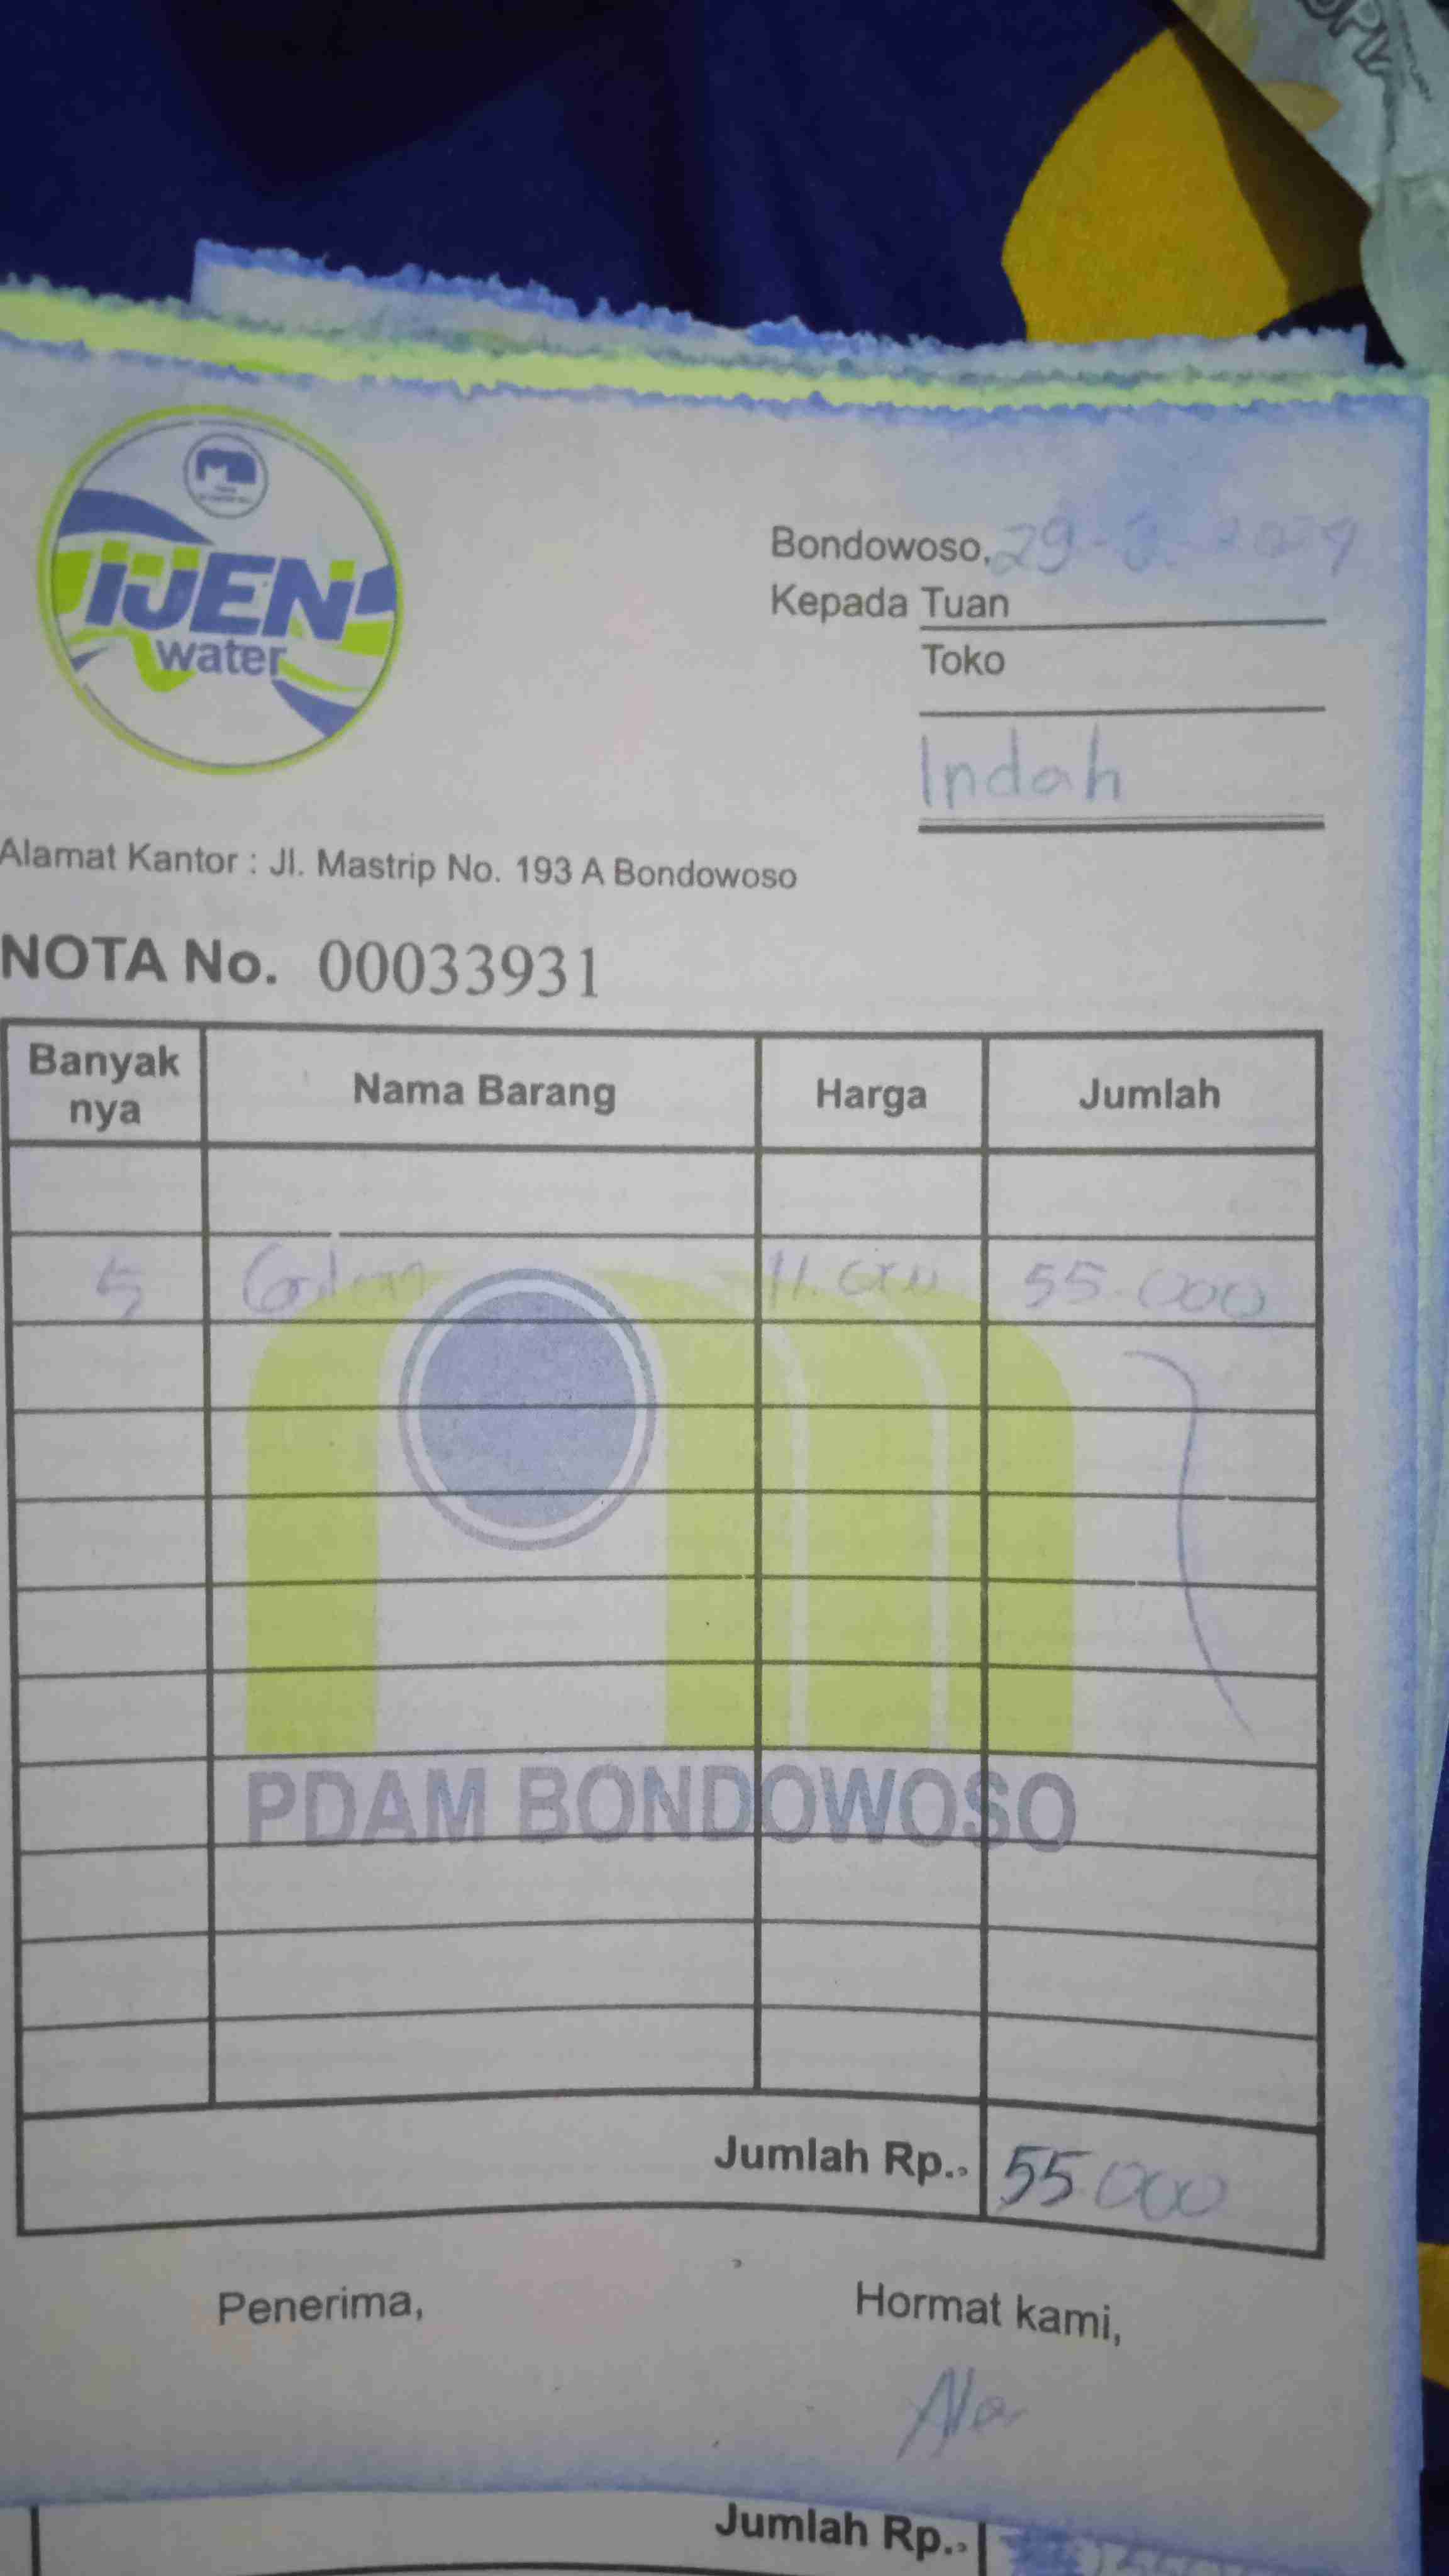 IJEN
water
Bondowoso, 29-
Kepada Tuan
Toko
Indah
Alamat Kantor : Jl. Mastrip No. 193 A Bondowoso
NOTA No. 00033931
Banyak nya Nama Barang Harga Jumlah
5 Galon 11.000 55.000
PDAM BONDOWOSO
Jumlah Rp., 55.000
Penerima, Hormat kami,
Jumlah Rp.,